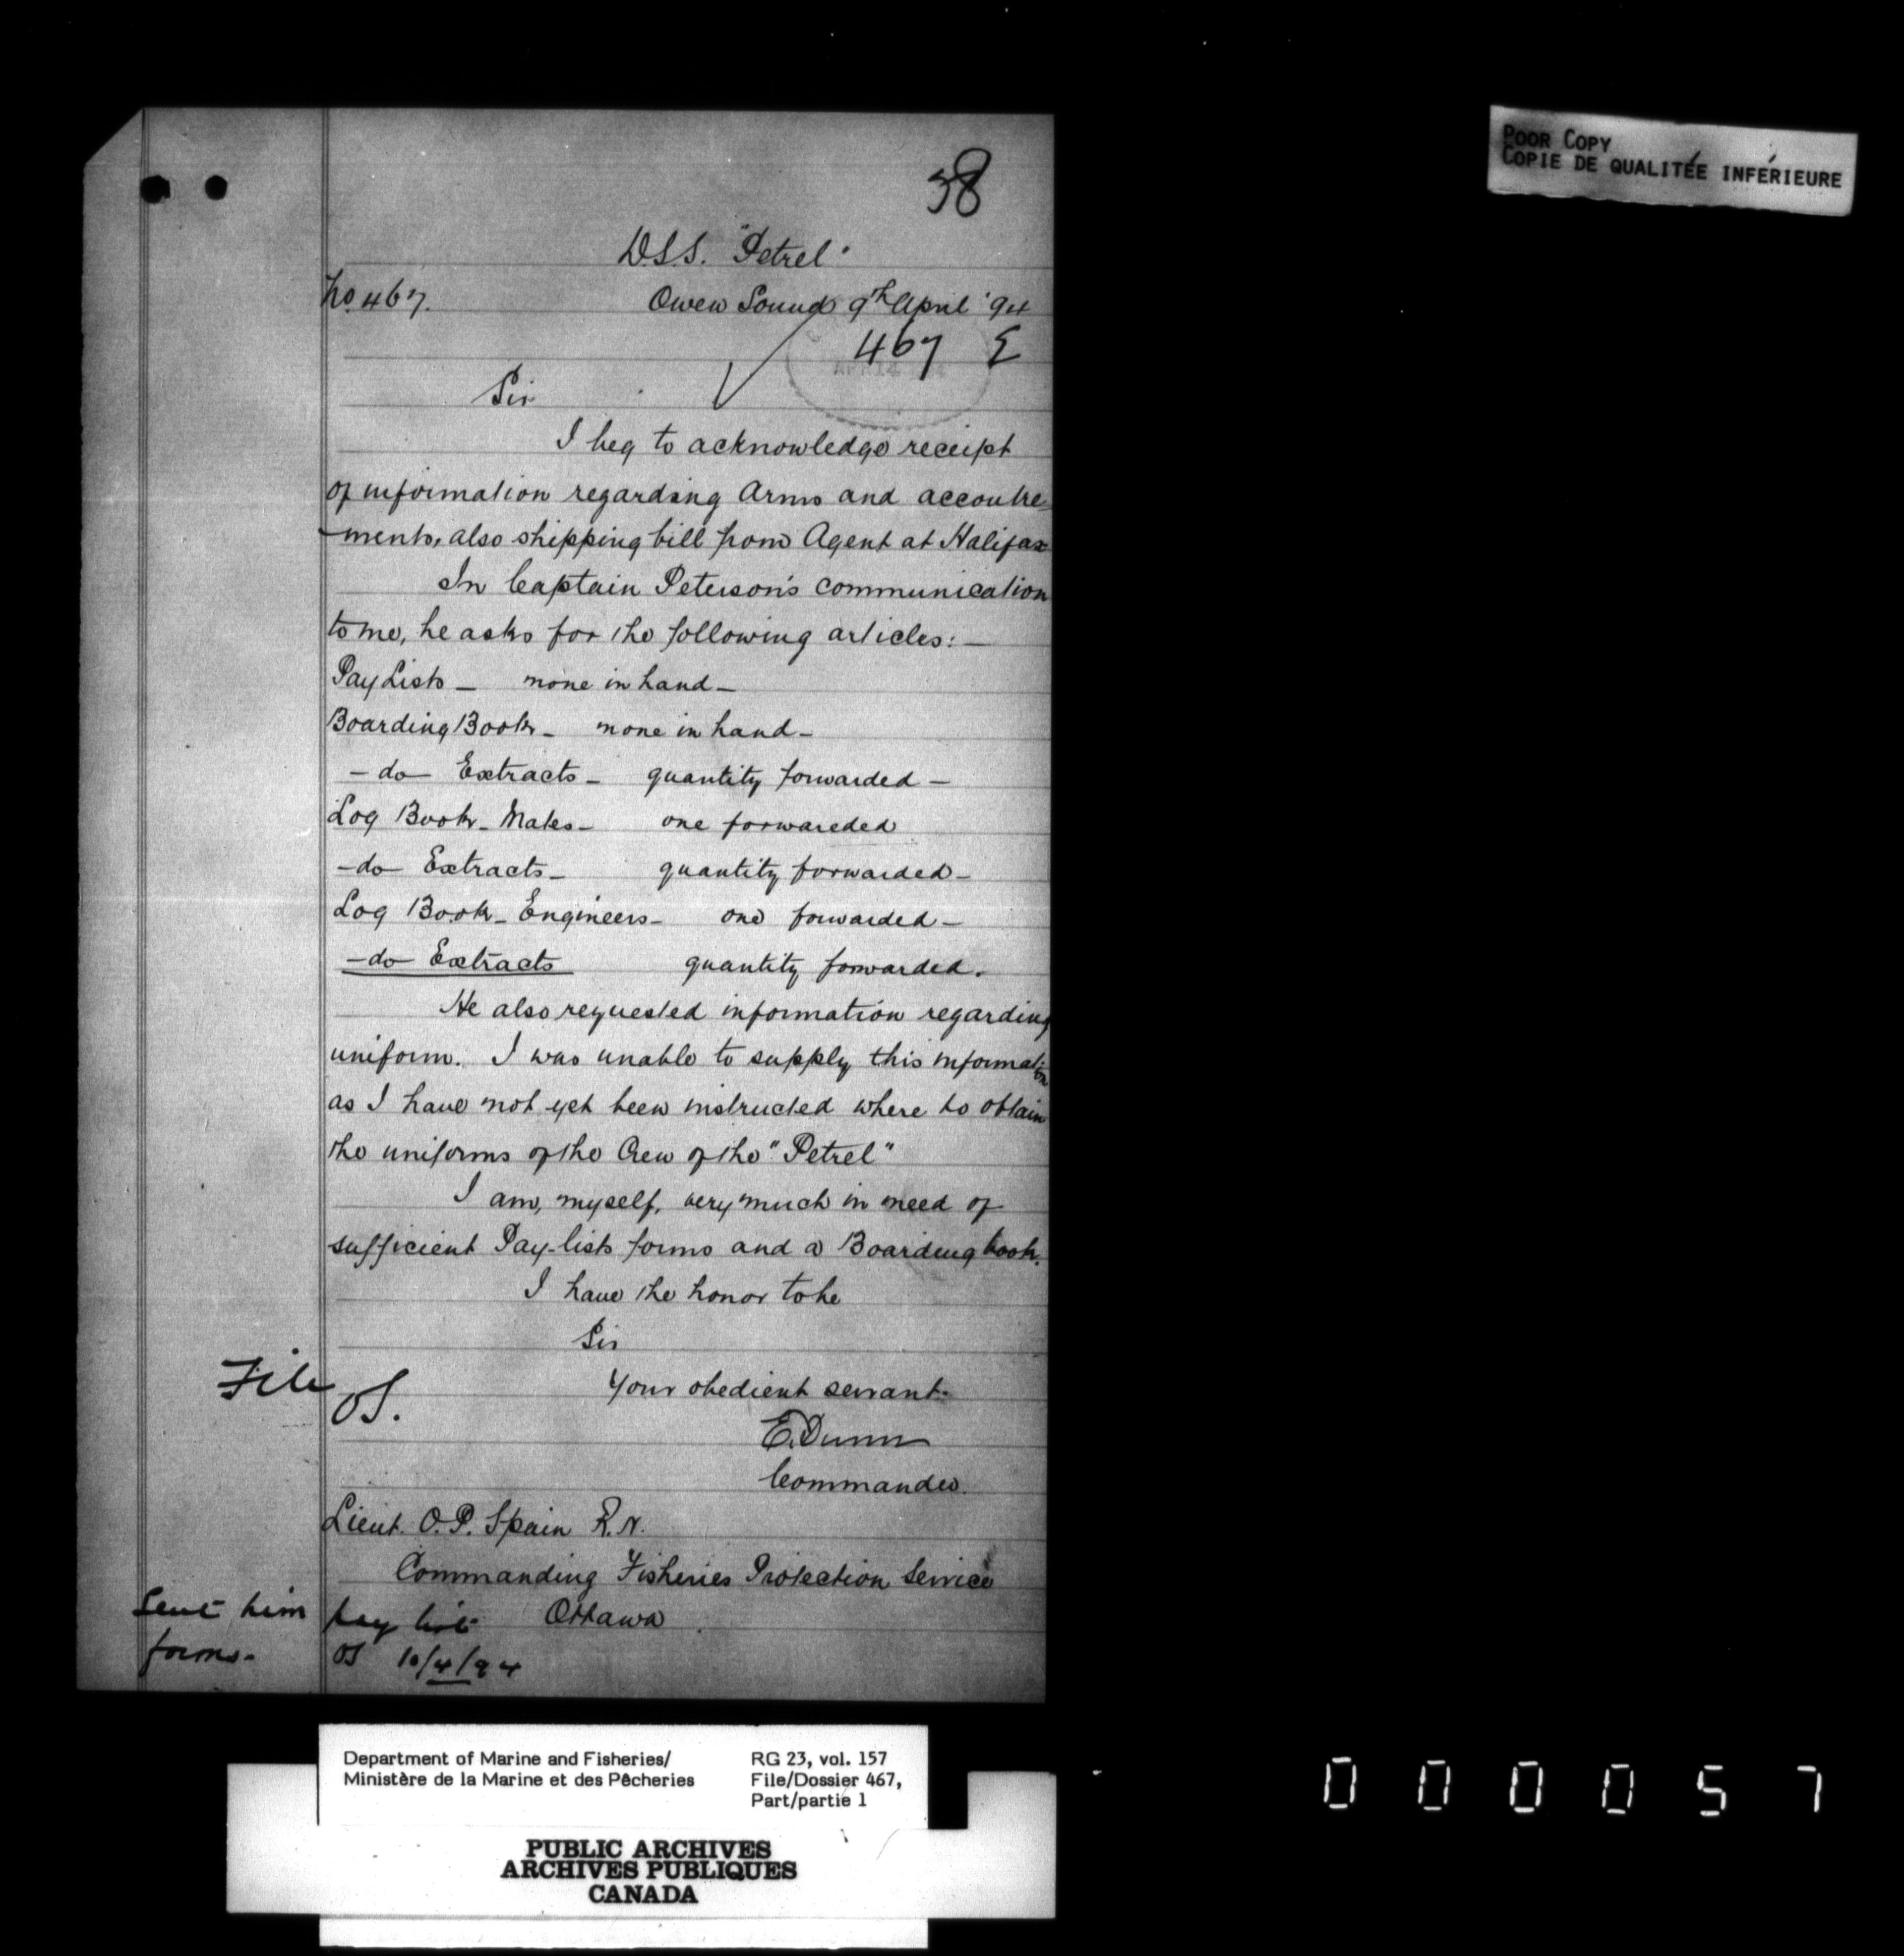 POOR COPY
COPIE DE QUALITÉE INFÉRIEURE
38
D.S.S. "Petrel"
No 467.
Owen Sound 9th April '94
467 E
APR 14
Sir
I beg to acknowledge receipt
of information regarding Arms and accoutre-
-ments, also shipping bill from Agent at Halifax
In Captain Peterson's communication
to me, he asks for the following articles:—
Pay Lists — none in hand —
Boarding Book — none in hand —
— do — Extracts — quantity forwarded —
Log Book — Mates — one forwareded
— do — Extracts — quantity forwarded —
Log Book — Engineers — one forwarded —
— do — Extracts quantity forwarded.
He also requested information regarding
uniform. I was unable to supply this information
as I have not yet been instructed where to obtain
the uniforms of the Crew of the "Petrel"
I am, myself, very much in need of
sufficient Pay-lists forms and a Boarding book.
I have the honor to be
Sir
Your obedient servant.
File OS.
E. Dunn
Commander.
Lieut. O.P. Spain R.N.
Commanding Fisheries Protection Service
Ottawa
Sent him pay list
forms. OS 10/4/94
Department of Marine and Fisheries/
Ministère de la Marine et des Pêcheries
RG 23, vol. 157
File/Dossier 467,
Part/partie 1
PUBLIC ARCHIVES
ARCHIVES PUBLIQUES
CANADA
000057